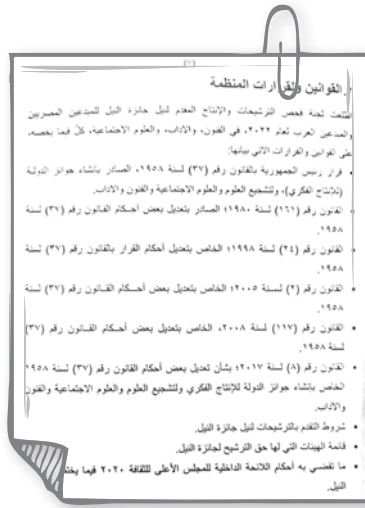 (٧)
القوانين والقرارات المنظمة
اطلعت لجنة فحص الترشيحات والإنتاج المقدم لنيل جائزة النيل للمبدعين المصريين
والمبدعين العرب لعام ٢٠٢٢، في الفنون، والآداب، والعلوم الاجتماعية، كلٌ فيما يخصه،
على القوانين والقرارات الآتي بيانها:
• قرار رئيس الجمهورية بالقانون رقم (٣٧) لسنة ١٩٥٨، الصادر بإنشاء جوائز الدولة
(للإنتاج الفكري)، ولتشجيع العلوم والعلوم الاجتماعية والفنون والآداب.
• القانون رقم (١٦١) لسنة ١٩٨٠؛ الصادر بتعديل بعض أحكام القانون رقم (٣٧) لسنة
١٩٥٨.
• القانون رقم (٢٤) لسنة ١٩٩٨؛ الخاص بتعديل أحكام القرار بالقانون رقم (٣٧) لسنة
١٩٥٨.
• القانون رقم (٢) لسنة ٢٠٠٥؛ الخاص بتعديل بعض أحكام القانون رقم (٣٧) لسنة
١٩٥٨.
• القانون رقم (١١٧) لسنة ٢٠٠٨، الخاص بتعديل بعض أحكام القانون رقم (٣٧)
لسنة ١٩٥٨.
• القانون رقم (٨) لسنة ٢٠١٧؛ بشأن تعديل بعض أحكام القانون رقم (٣٧) لسنة ١٩٥٨
الخاص بإنشاء جوائز الدولة للإنتاج الفكري ولتشجيع العلوم والعلوم الاجتماعية والفنون
والآداب.
• شروط التقدم بالترشيحات لنيل جائزة النيل.
• قائمة الهيئات التي لها حق الترشيح لجائزة النيل.
• ما تقضي به أحكام اللائحة الداخلية للمجلس الأعلى للثقافة ٢٠٢٠ فيما
النيل.